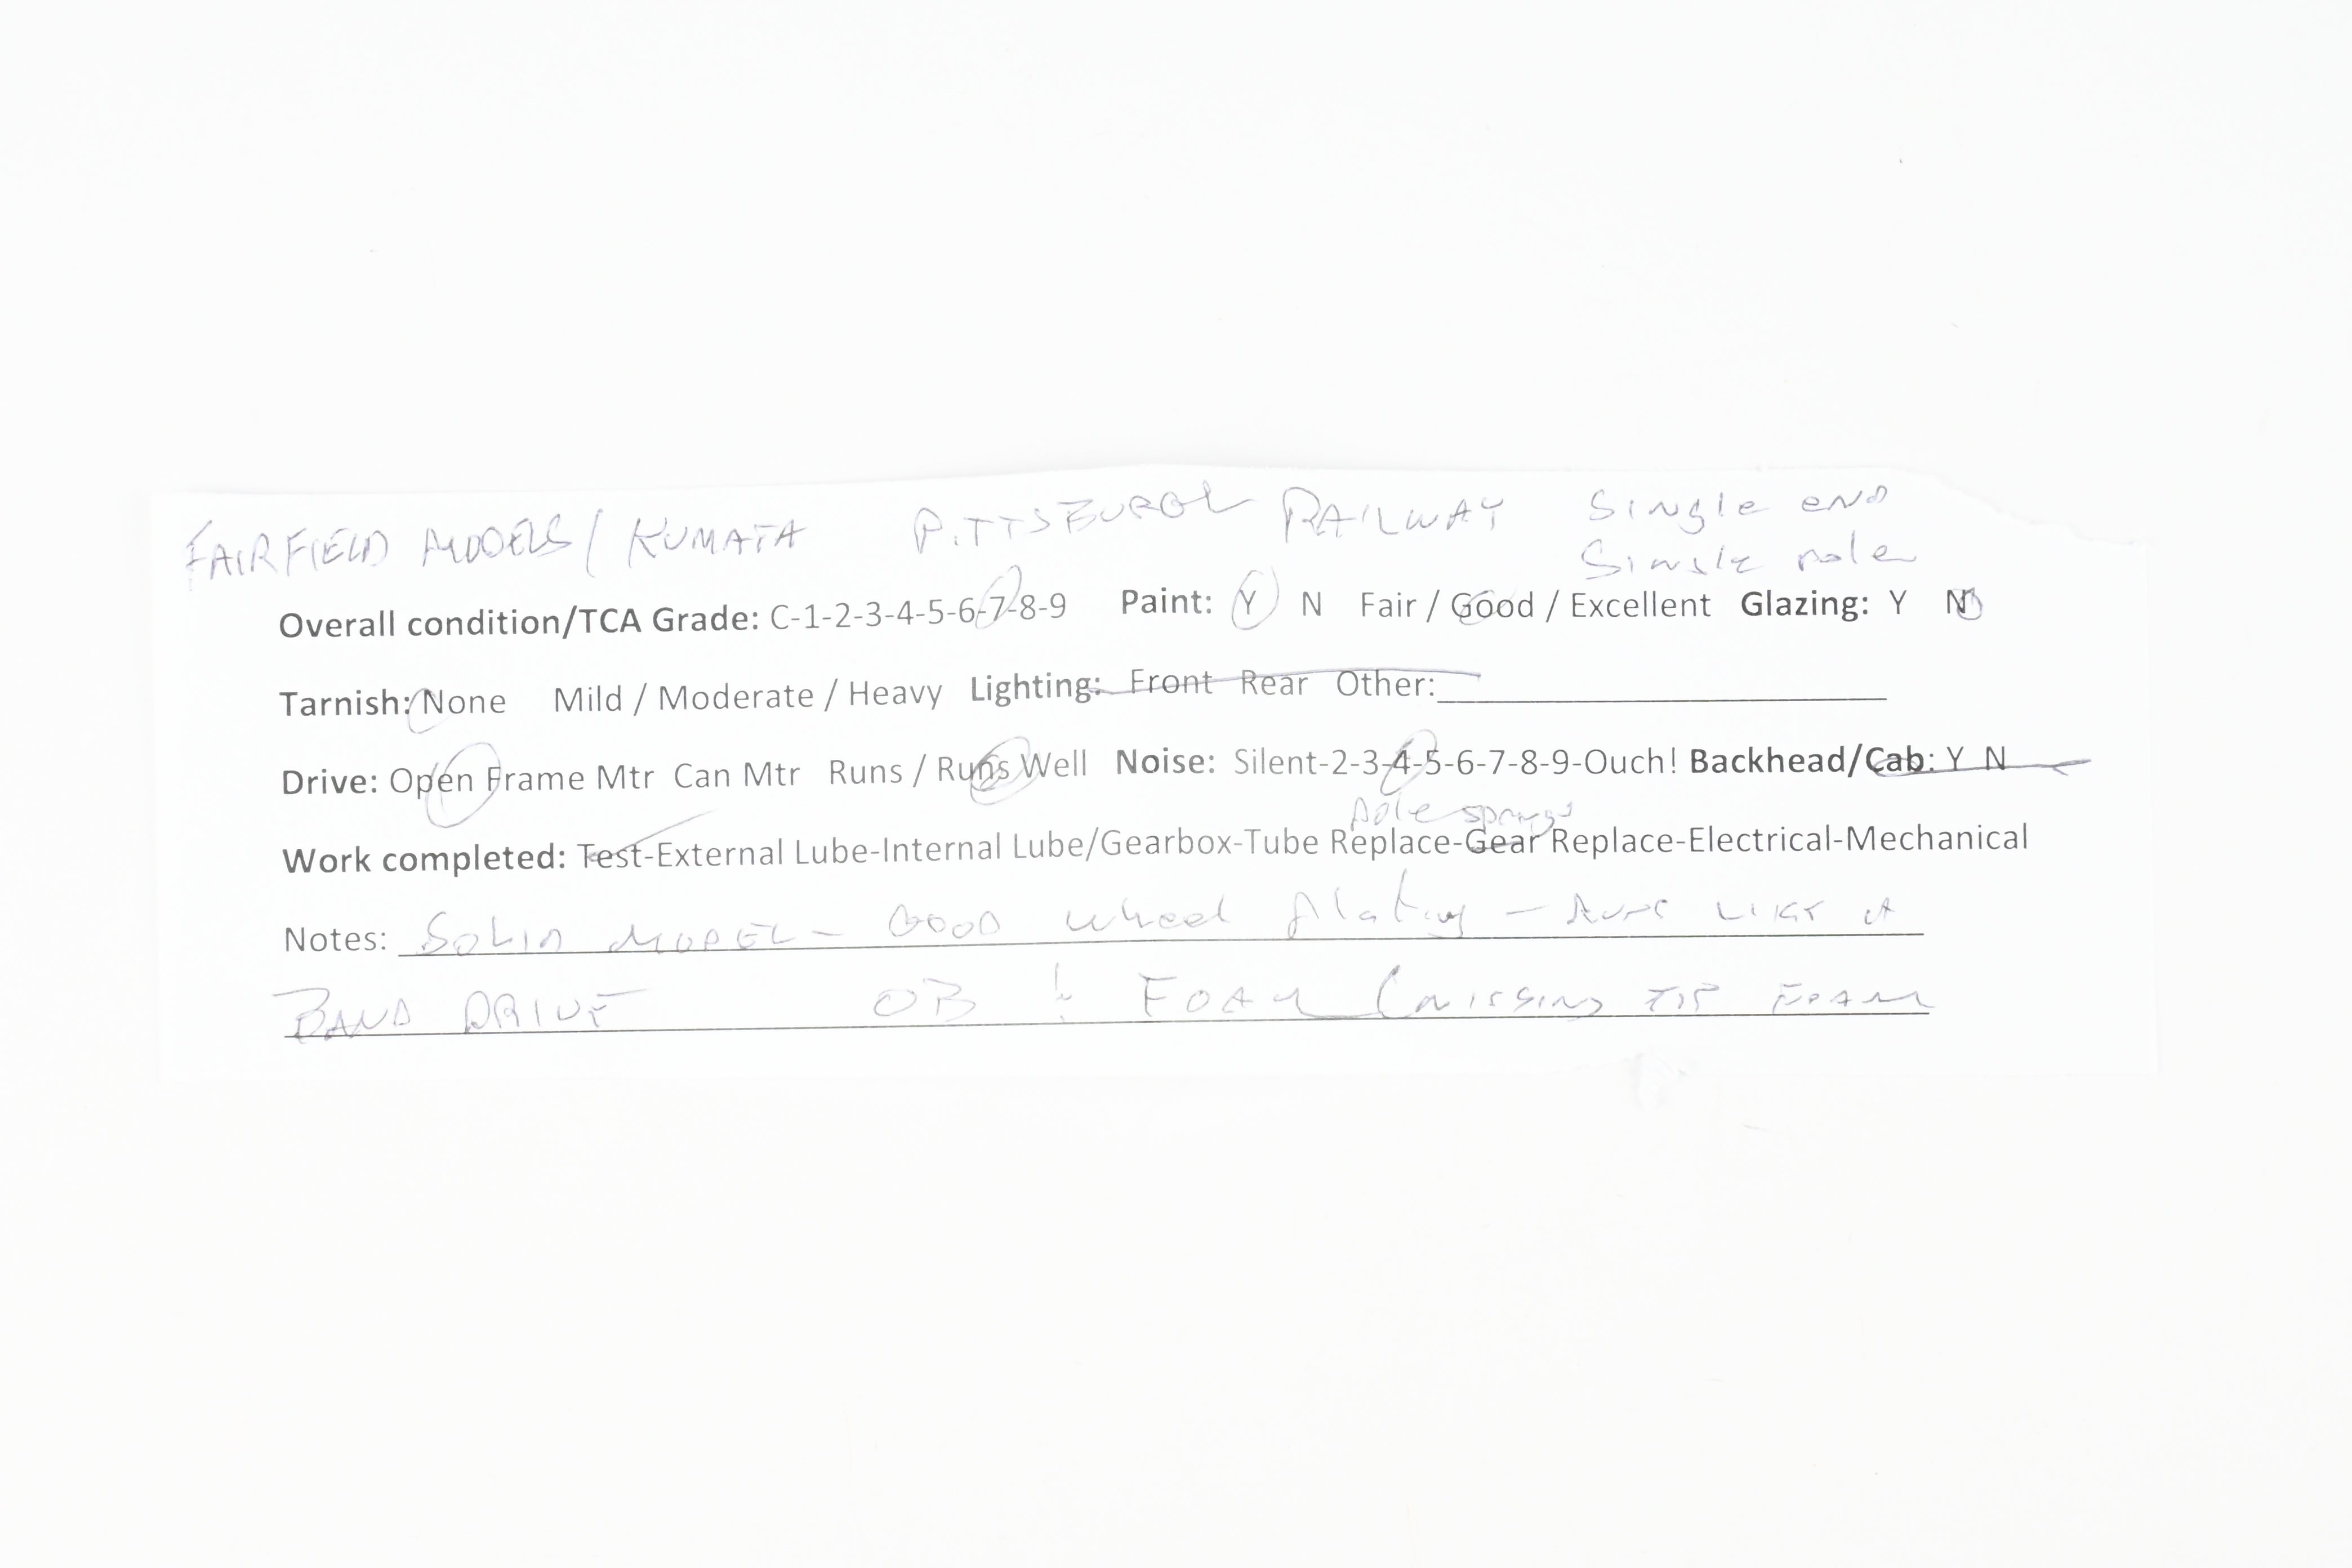 FAIRFIELD MODELS / KUMATA PITTSBURGH RAILWAY Single end
Single pole
Overall condition/TCA Grade: C-1-2-3-4-5-6-7-8-9 Paint: Y N Fair / Good / Excellent Glazing: Y N
Tarnish: None Mild / Moderate / Heavy Lighting: Front Rear Other:
Drive: Open Frame Mtr Can Mtr Runs / Runs Well Noise: Silent-2-3-4-5-6-7-8-9-Ouch! Backhead/Cab: Y N
pole springs
Work completed: Test-External Lube-Internal Lube/Gearbox-Tube Replace-Gear Replace-Electrical-Mechanical
Notes: SOLID MODEL - GOOD wheel plating - RUNS LIKE A
BAND DRIVE OB & FOAM (MISSING TOP FOAM